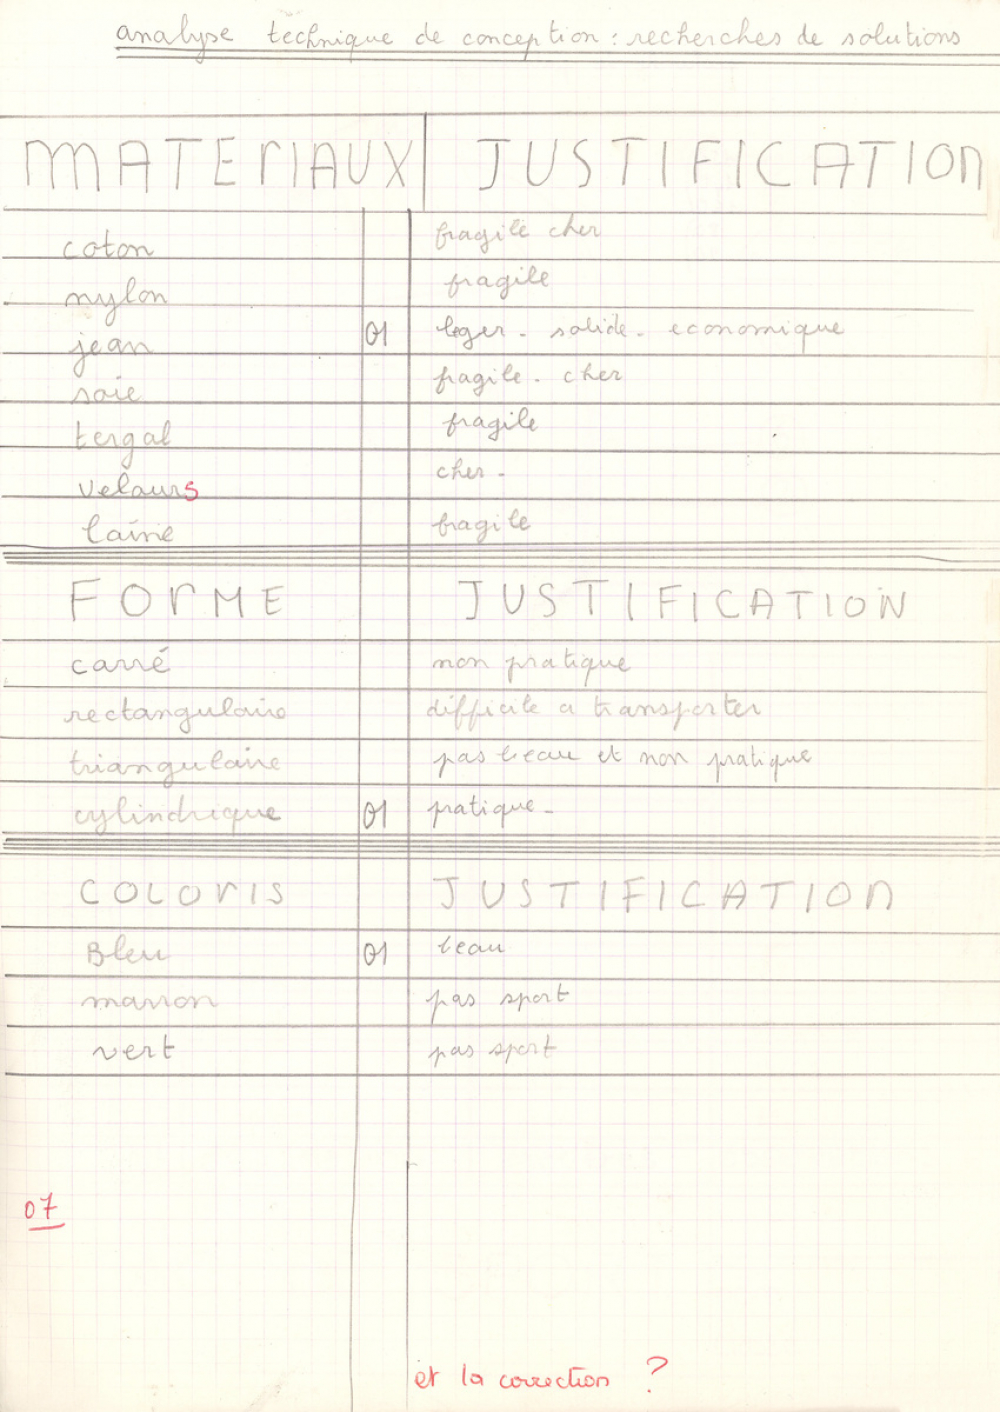 analyse technique de conception : recherches de solutions
MATERIAUX JUSTIFICATION
coton fragile cher
nylon fragile
jean 01 leger - solide - economique
soie fragile - cher
tergal fragile
velours cher -
laine fragile
FORME JUSTIFICATION
carré non pratique
rectangulaire difficile a transporter
triangulaire pas beau et non pratique
cylindrique 01 pratique -
COLORIS JUSTIFICATION
Bleu 01 beau
marron pas sport
vert pas sport
07
et la correction ?